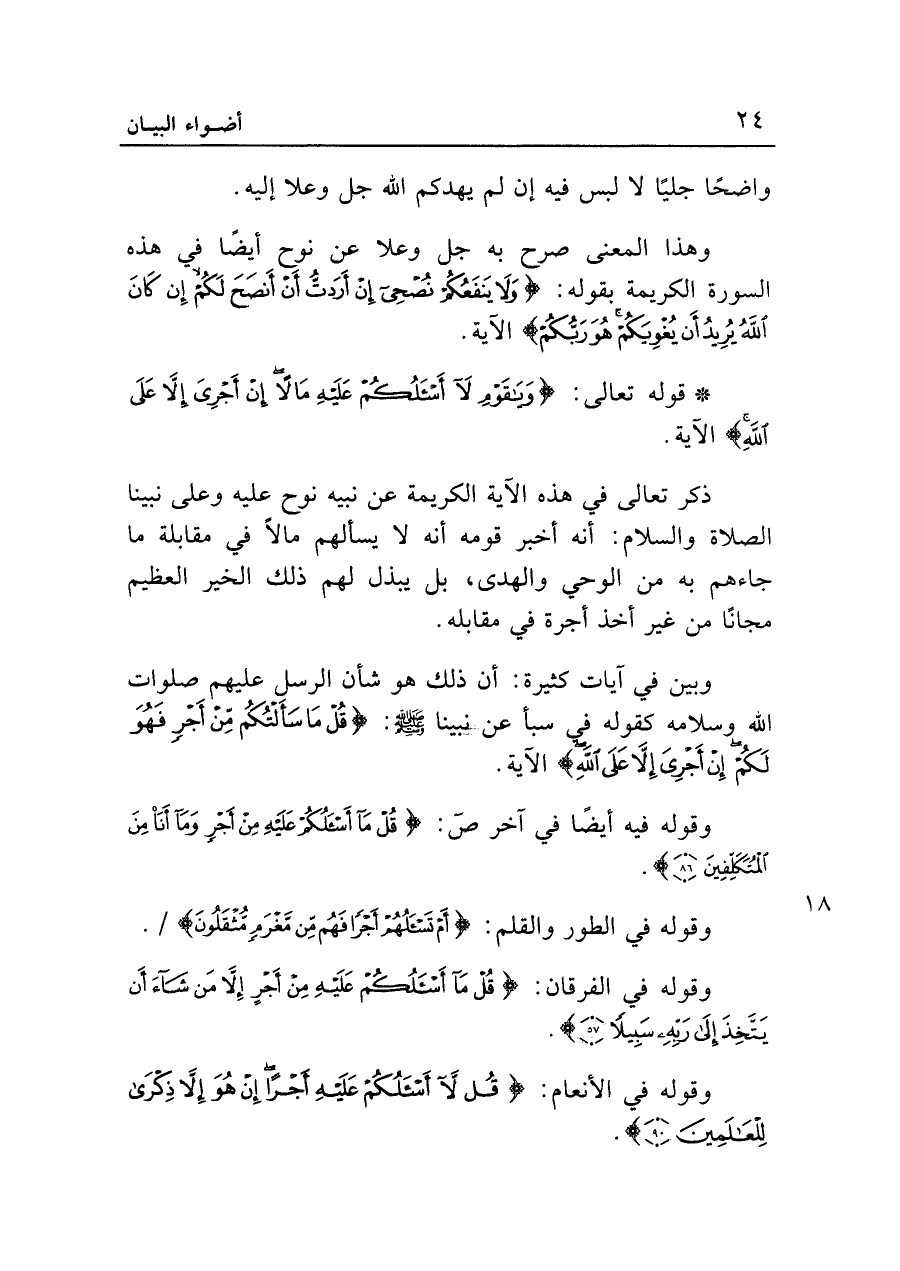 ٢٤ أضـواء البيـان
واضحًا جليًا لا لبس فيه إن لم يهدكم الله جل وعلا إليه.
وهذا المعنى صرح به جل وعلا عن نوح أيضًا في هذه
السورة الكريمة بقوله: ﴿وَلَا يَنفَعُكُمْ نُصْحِىٓ إِنْ أَرَدتُّ أَنْ أَنصَحَ لَكُمْ إِن كَانَ
ٱللَّهُ يُرِيدُ أَن يُغْوِيَكُمْۚ هُوَ رَبُّكُمْ﴾ الآية.
* قوله تعالى: ﴿وَيَٰقَوْمِ لَآ أَسْـَٔلُكُمْ عَلَيْهِ مَالًاۖ إِنْ أَجْرِىَ إِلَّا عَلَى
ٱللَّهِۚ﴾ الآية.
ذكر تعالى في هذه الآية الكريمة عن نبيه نوح عليه وعلى نبينا
الصلاة والسلام: أنه أخبر قومه أنه لا يسألهم مالاً في مقابلة ما
جاءهم به من الوحي والهدى، بل يبذل لهم ذلك الخير العظيم
مجانًا من غير أخذ أجرة في مقابله.
وبين في آيات كثيرة: أن ذلك هو شأن الرسل عليهم صلوات
الله وسلامه كقوله في سبأ عن نبينا ﷺ: ﴿قُلْ مَا سَأَلْتُكُم مِّنْ أَجْرٍ فَهُوَ
لَكُمْۖ إِنْ أَجْرِىَ إِلَّا عَلَى ٱللَّهِۖ﴾ الآية.
وقوله فيه أيضًا في آخر صَ: ﴿قُلْ مَآ أَسْـَٔلُكُمْ عَلَيْهِ مِنْ أَجْرٍ وَمَآ أَنَا۠ مِنَ
ٱلْمُتَكَلِّفِينَ ٨٦﴾.
١٨
وقوله في الطور والقلم: ﴿أَمْ تَسْـَٔلُهُمْ أَجْرًا فَهُم مِّن مَّغْرَمٍ مُّثْقَلُونَ﴾ /.
وقوله في الفرقان: ﴿قُلْ مَآ أَسْـَٔلُكُمْ عَلَيْهِ مِنْ أَجْرٍ إِلَّا مَن شَآءَ أَن
يَتَّخِذَ إِلَىٰ رَبِّهِۦ سَبِيلًا ٥٧﴾.
وقوله في الأنعام: ﴿قُل لَّآ أَسْـَٔلُكُمْ عَلَيْهِ أَجْرًاۖ إِنْ هُوَ إِلَّا ذِكْرَىٰ
لِلْعَٰلَمِينَ ٩٠﴾.